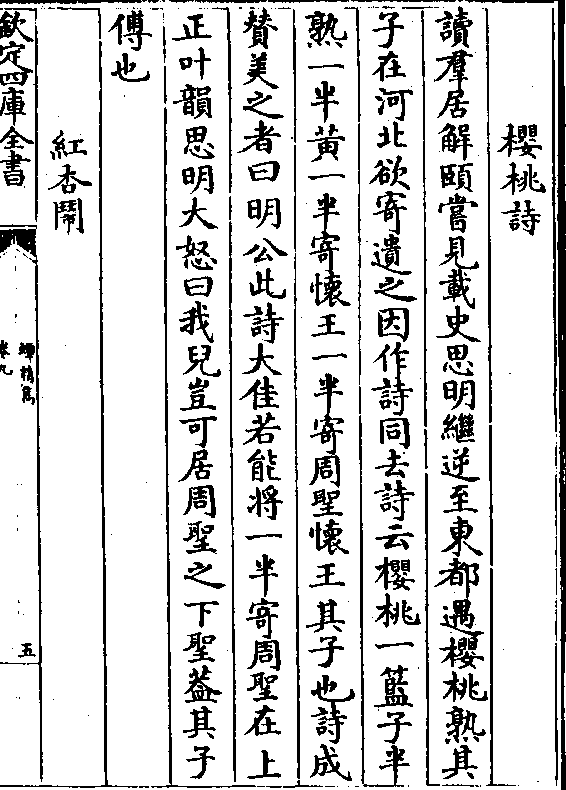 櫻桃詩
讀羣居解頤嘗見載史思明繼逆至東都遇櫻桃熟其
子在河北欲寄遺之因作詩同去詩云櫻桃一籃子半
熟一半黄一半寄懷王一半寄周聖懷王其子也詩成
賛美之者曰明公此詩大佳若能將一半寄周聖在上
正叶韻思明大怒曰我兒豈可居周聖之下聖葢其子
傅也
紅杏鬧
欽定四庫全書
卷九
五